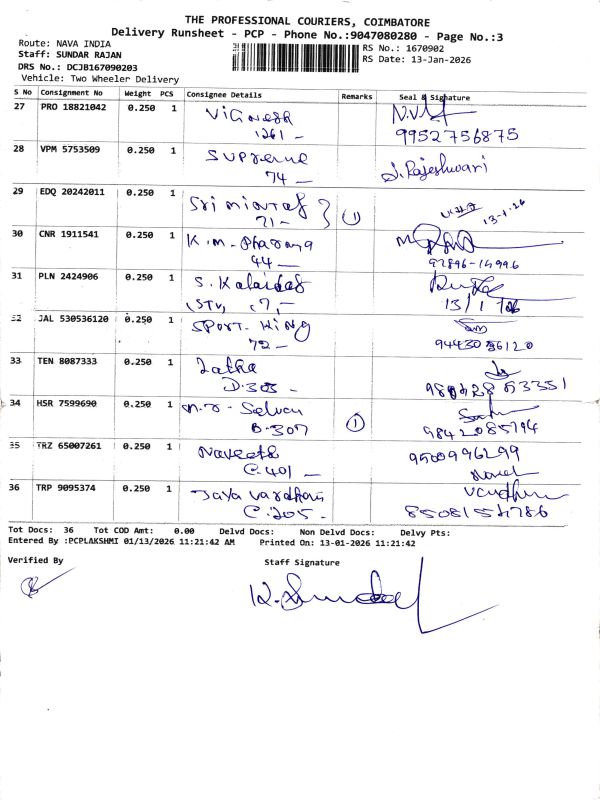 THE PROFESSIONAL COURIERS, COIMBATORE
Delivery Runsheet - PCP - Phone No.:9047080280 - Page No.:3
Route: NAVA INDIA
Staff: SUNDAR RAJAN
DRS No.: DCJB167090203
Vehicle: Two Wheeler Delivery
RS No.: 1670902
RS Date: 13-Jan-2026
S No Consignment No Weight PCS Consignee Details Remarks Seal & Signature
27 PRO 18821042 0.250 1 Vignesh
1261 - 9952756875
28 VPM 5753509 0.250 1 Supreme
74 - S. Rajeshwari
29 EDQ 20242011 0.250 1 Sri
71 - 1 13-1-26
30 CNR 1911541 0.250 1 K.m. Pharma
44 - 92896-14996
31 PLN 2424906 0.250 1 S.
13/1/26
32 JAL 530536120 0.250 1 Sport. King
72 - 9443036120
33 TEN 8087333 0.250 1 Latha
D.303 -
34 HSR 7599690 0.250 1 Selvan
B.307 1 9842085794
35 TRZ 65007261 0.250 1 Naveeth
C.401 - 9500996299
36 TRP 9095374 0.250 1 Jaya Vardhan
C.205 - 8508154786
Tot Docs: 36 Tot COD Amt: 0.00 Delvd Docs: Non Delvd Docs: Delvy Pts:
Entered By :PCPLAKSHMI 01/13/2026 11:21:42 AM Printed On: 13-01-2026 11:21:42
Verified By Staff Signature